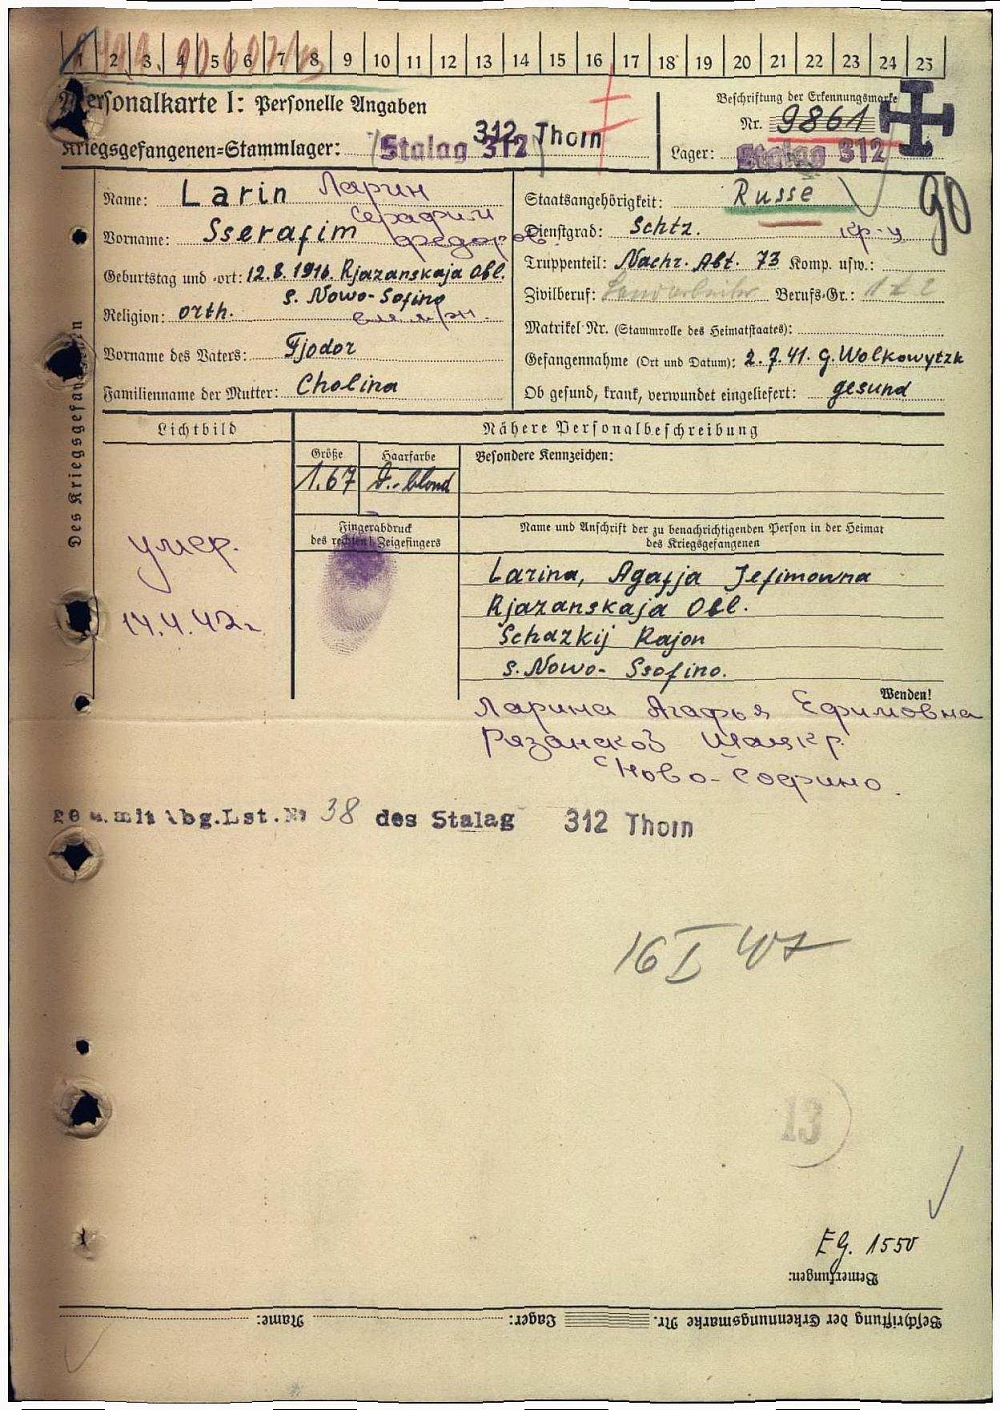 1 2 3 4 5 6 7 8 9 10 11 12 13 14 15 16 17 18 19 20 21 22 23 24 25
Personalkarte I: Personelle Angaben
Kriegsgefangenen-Stammlager: Stalag 312 312 Thorn
Beschriftung der Erkennungsmarke
Nr. 9861
Lager: Stalag 312
90
Des Kriegsgefangenen
Name: Larin Ларин
Серафим
Vorname: Sserafim Федоров.
Geburtstag und -ort: 12.8.1916. Rjazanskaja Obl.
s. Nowo-Sofino
Religion: orth.
Vorname des Vaters: Fjodor
Familienname der Mutter: Cholina
Staatsangehörigkeit: Russe
Dienstgrad: Schtz. кр-ц
Truppenteil: Nachr. Abt. 73 Komp. usw.:
Zivilberuf: Landarbeiter Berufs-Gr.:
Matrikel Nr. (Stammrolle des Heimatstaates):
Gefangennahme (Ort und Datum): 2.7.41. g. Wolkowytzk
Ob gesund, krank, verwundet eingeliefert: gesund
Lichtbild
Nähere Personalbeschreibung
Größe Haarfarbe Besondere Kennzeichen:
1.67 d.-blond
Fingerabdruck
des rechten Zeigefingers
Name und Anschrift der zu benachrichtigenden Person in der Heimat
des Kriegsgefangenen
умер.
14.4.42г.
Larina, Agafja Jefimowna
Rjazanskaja Obl.
Schazkij Rajon
s. Nowo-Ssofino.
Wenden!
Ларина Агафья Ефимовна
Рязанской Шацк р.
с Ново-Софино.
gem. mit Abg.Lst.Nr 38 des Stalag 312 Thorn
16 I
13
EG. 1550
Bemerkungen:
Beschriftung der Erkennungsmarke Nr. Lager: Name: